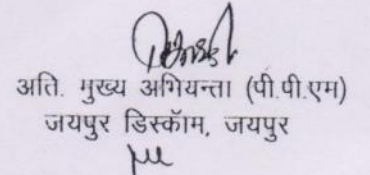 अति. मुख्य अभियन्ता (पी.पी.एम)
जयपुर डिस्कॉम, जयपुर